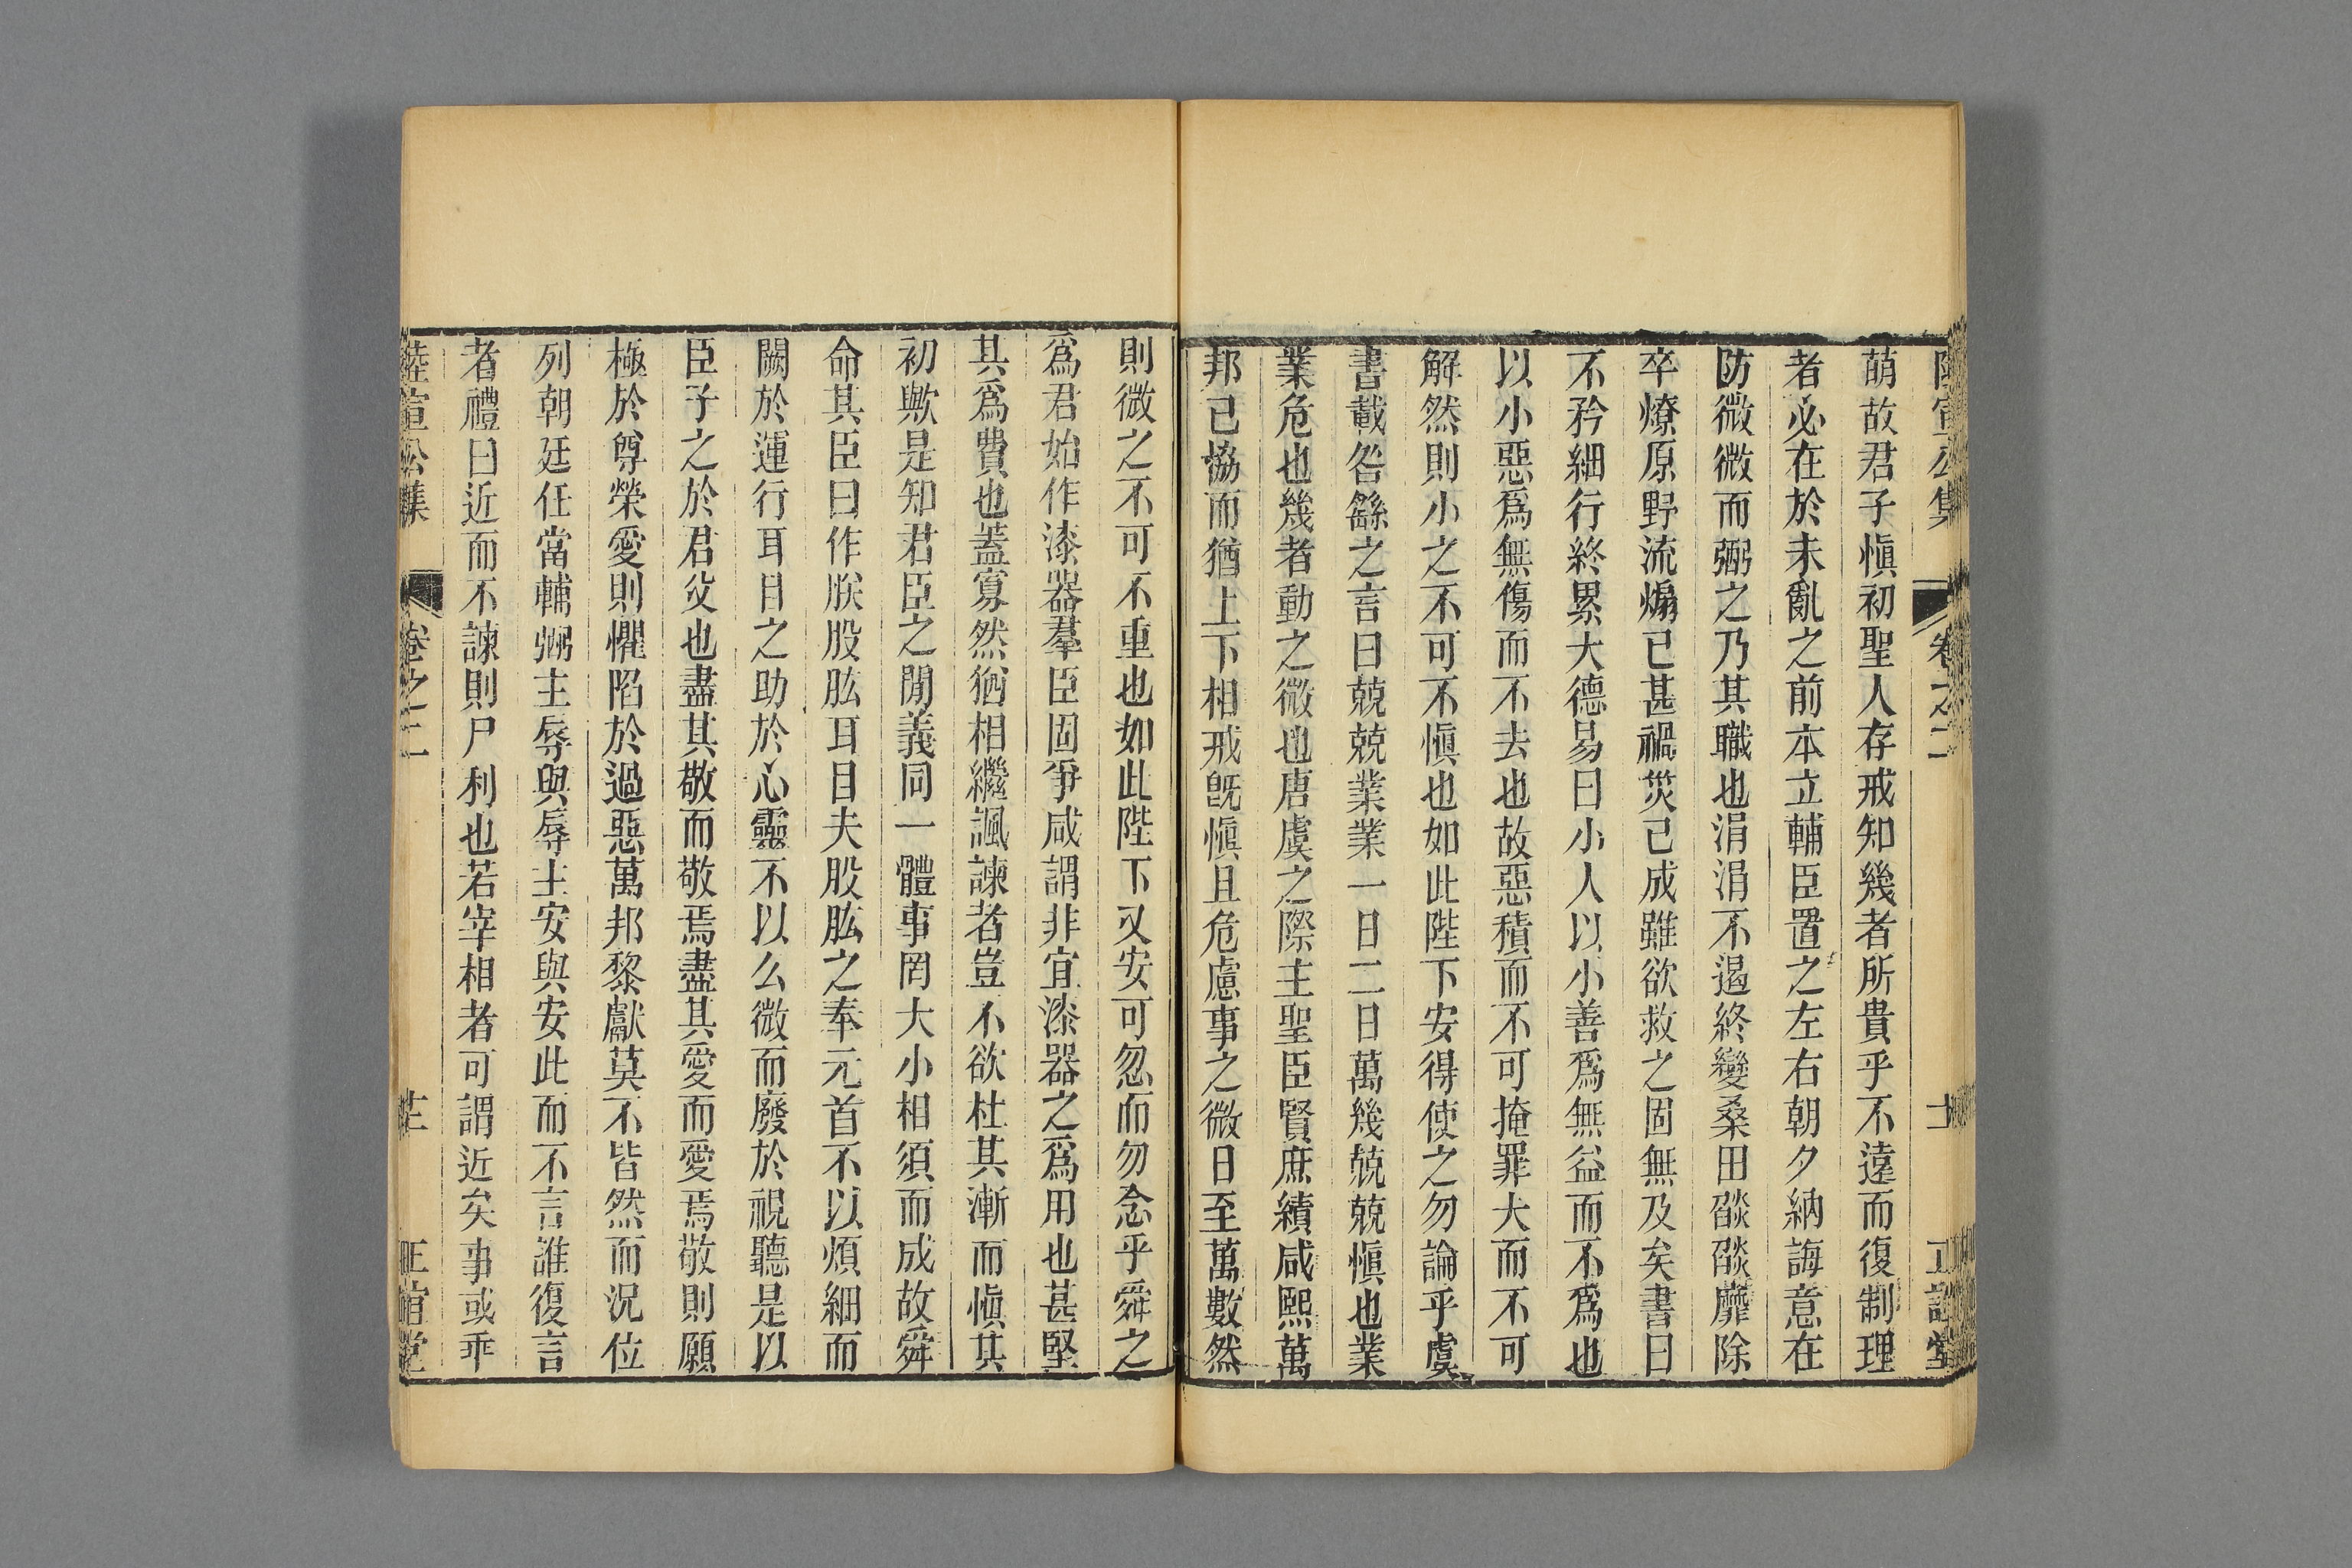 萌故君子愼初聖人存戒知幾者所貴乎不遠而復制理
者必在於未亂之前本立輔臣置之左右朝夕納誨意在
防微微而弼之乃其職也涓涓不遏終變桑田燄燄靡除
卒燎原野流煽已甚禍災已成雖欲救之固無及矣書曰
不矜細行終累大德易曰小人以小善爲無益而不爲也
以小惡爲無傷而不去也故惡積而不可掩罪大而不可
解然則小之不可不愼也如此陛下安得使之勿論乎虞
書載咎繇之言曰兢兢業業一日二日萬幾兢兢愼也業
業危也幾者動之微也唐虞之際主聖臣賢庶績咸熙萬
邦已協而猶上下相戒旣愼且危慮事之微日至萬數然
則微之不可不重也如此陛下又安可忽而勿念乎舜之
爲君始作漆器羣臣固爭咸謂非宜漆器之爲用也甚堅
其爲費也蓋寡然猶相繼諷諫者豈不欲杜其漸而愼其
初歟是知君臣之閒義同一體事罔大小相須而成故舜
命其臣曰作朕股肱耳目夫股肱之奉元首不以煩細而
闕於運行耳目之助於心靈不以么微而廢於視聽是以
臣子之於君父也盡其敬而敬焉盡其愛而愛焉敬則願
極於尊榮愛則懼陷於過惡萬邦黎獻莫不皆然而況位
列朝廷任當輔弼主辱與辱主安與安此而不言誰復言
者禮曰近而不諫則尸利也若宰相者可謂近矣事或乖
陸宣公集 卷之二